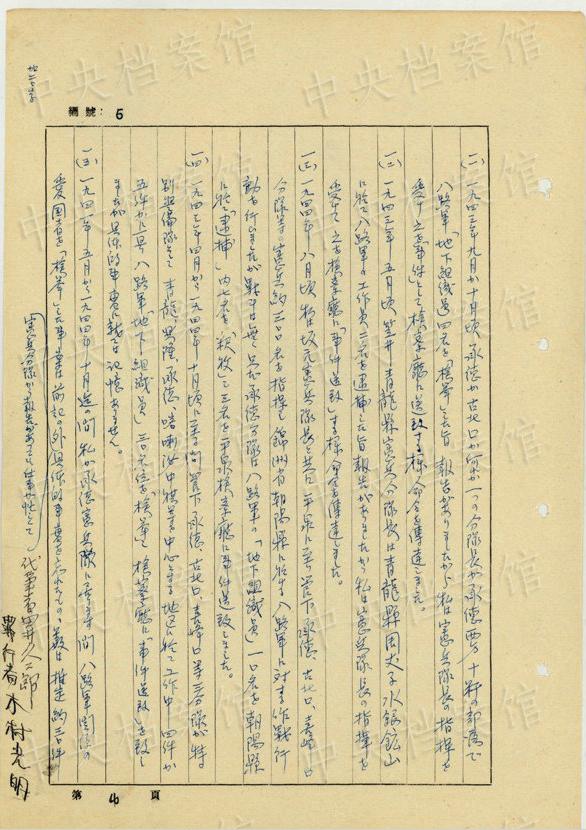 編號：5
(一)一九四三年九月か十月頃、承徳か古北口か何か一つの分隊長か承徳西方十粁の部落で
八路軍「地下組織員」四名を「検挙」した旨報告がありましたから私は憲兵隊長の指揮を
受け之を「事件」として検察庁に送致する様命令を傳達しました。
(二)一九四三年五月頃 青龍縣憲兵分隊長は青龍縣 水銀鉱山
に於て八路軍の工作員二名を逮捕した旨報告がありましたから私は憲兵隊長の指揮を
受けて之を検察庁に「事件送致」する様命令を傳達しました。
(三)一九四四年八月頃 私は 憲兵隊長と共に平泉に至り管下承徳、古北口、喜峰口
分隊等の憲兵約三〇名を指揮し錦州省朝陽縣に於ける八路軍に対する作戦行
動を行いましたが 承徳分隊は八路軍の「地下組織員」一〇名を朝陽縣
に於て「逮捕」内七名を「釈放」し三名を平泉検察庁に事件送致しました。
(四)一九四三年四月から一九四四年十月頃に至る間管下承徳、古北口、喜峰口等三分隊が特
別 隊として青龍、興隆、承徳、喀喇沁中旗等を中心とする地区に於て工作中 四件か
五件かに亘り八路軍「地下組織員」三〇名位を「検挙」し検察庁に「事件送致」を致し
ましたが具体的事実に就ては記憶ありません。
(五)一九四一年五月から一九四四年十月迄の間私が承徳憲兵隊に 間八路軍関係の
愛国者を「検挙」した事実は前記の外具体的事実を忘れたもの 数は推定約三〇件
憲兵分隊から報告があって 仕事の性として
代筆者
罪行者 木村光明
第 4 頁
中央档案馆